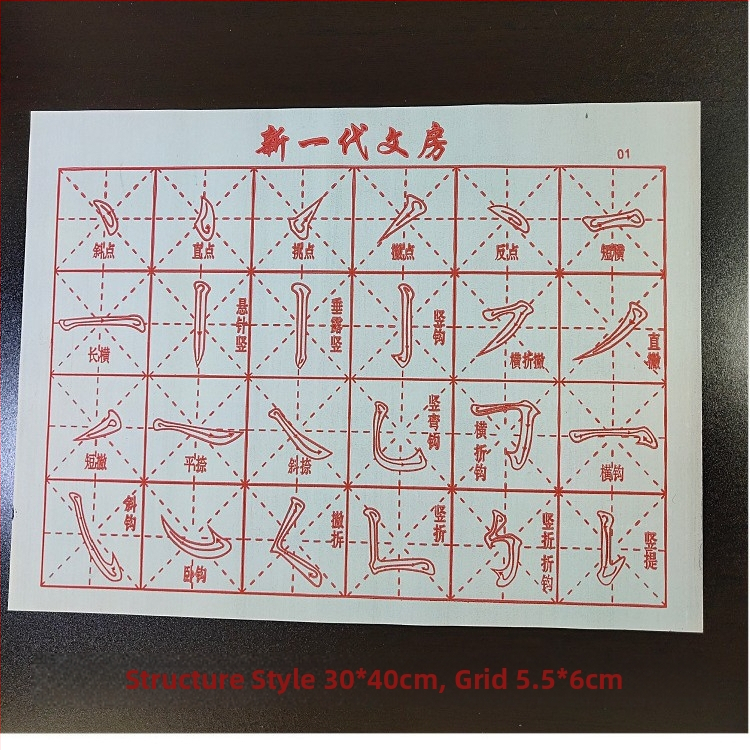 新一代文房
01
斜点 直点 挑点 撇点 反点 短横
长横 悬针竖 垂露竖 竖钩 横折撇 直撇
短撇 平捺 斜捺 竖弯钩 横折钩 横钩
斜钩 卧钩 撇折 竖折 竖折折钩 竖提
Structure Style 30*40cm, Grid 5.5*6cm